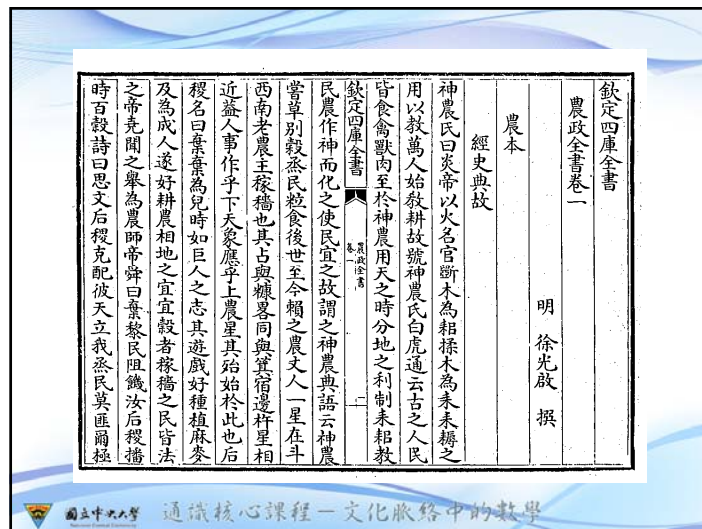 欽定四庫全書
農政全書卷一
明 徐光啟 撰
農本
經史典故
神農氏曰炎帝以火名官斷木為耜揉木為耒耒耨之
用以教萬人始教耕故號神農氏白虎通云古之人民
皆食禽獸肉至於神農用天之時分地之利制耒耜教
欽定四庫全書
農政全書
卷一
二
民農作神而化之使民宜之故謂之神農典語云神農
嘗草別穀烝民粒食後世至今賴之農丈人一星在斗
西南老農主稼穡也其占與糠畧同與箕宿邊杵星相
近益人事作乎下天象應乎上農星其殆始於此也后
稷名曰棄棄為兒時如巨人之志其遊戲好種植麻麥
及為成人遂好耕農相地之宜宜穀者稼穡之民皆法
之帝堯聞之舉為農師帝舜曰棄黎民阻饑汝后稷播
時百穀詩曰思文后稷克配彼天立我烝民莫匪爾極
國立中央大學
National Central University
通識核心課程－文化脈絡中的數學